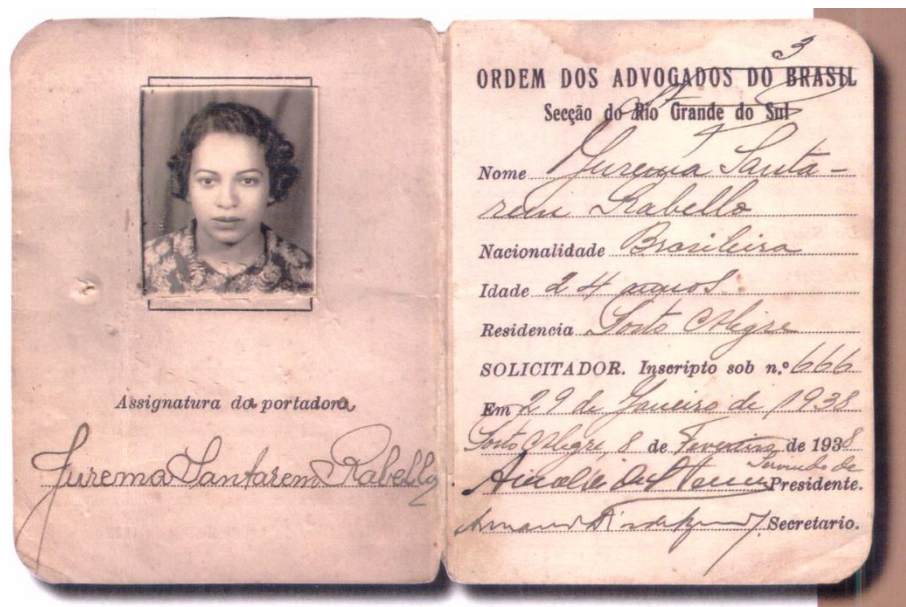 Assignatura da portadora
Jurema Santarem Rabello
3
ORDEM DOS ADVOGADOS DO BRASIL
Secção do Rio Grande do Sul
Nome Jurema Santa-
rem Rabello
Nacionalidade Brasileira
Idade 24 annos.
Residencia Porto Alegre
SOLICITADOR. Inscripto sob n.º 666
Em 29 de Janeiro de 1938
Porto Alegre, 8 de Fevereiro de 1938
Presidente.
Secretario.